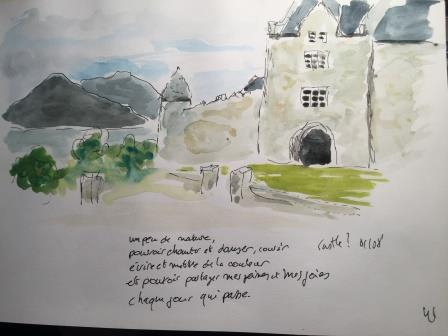 un peu de nature,
pouvoir chanter et danser, courir
écrire et mettre de la couleur
et pouvoir partager mes peines et mes joies
chaque jour qui passe.
Castle?